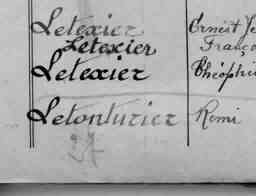 Letexier Ernest Je
Letexier Franço
Letexier Théophi
Letonturier Remi
27